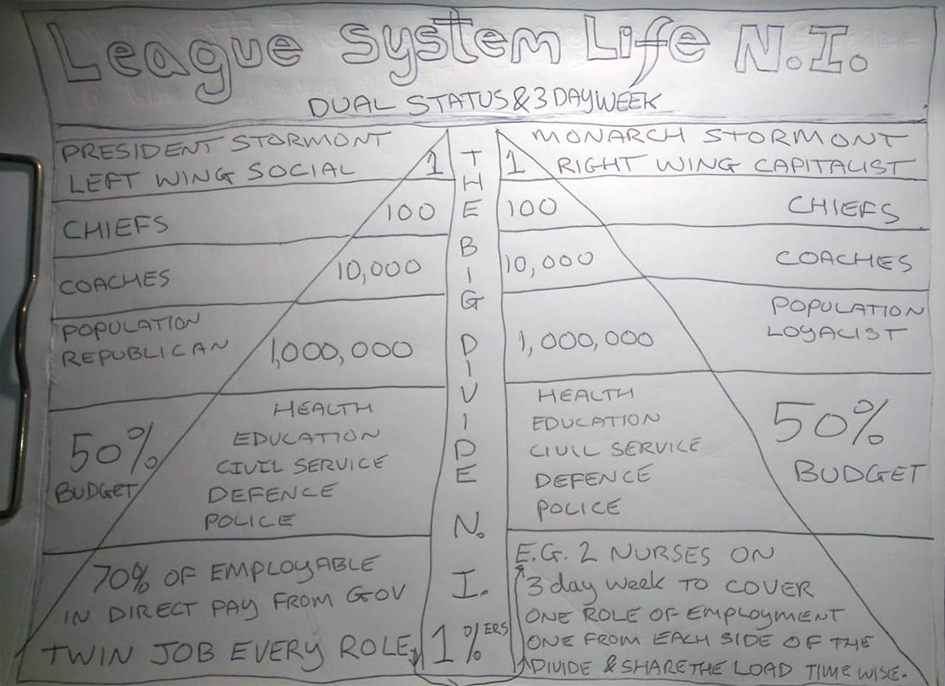 League System Life N.I.
DUAL STATUS & 3 DAY WEEK
PRESIDENT STORMONT
LEFT WING SOCIAL
1
CHIEFS
100
COACHES
10,000
POPULATION
REPUBLICAN
1,000,000
50%
BUDGET
HEALTH
EDUCATION
CIVIL SERVICE
DEFENCE
POLICE
70% OF EMPLOYABLE
IN DIRECT PAY FROM GOV
TWIN JOB EVERY ROLE
THE BIG DIVIDE N. I.
1%ERS
MONARCH STORMONT
1 RIGHT WING CAPITALIST
100
CHIEFS
10,000
COACHES
POPULATION
LOYALIST
1,000,000
HEALTH
EDUCATION
CIVIL SERVICE
DEFENCE
POLICE
50%
BUDGET
E.G. 2 NURSES ON
3 day week TO COVER
ONE ROLE OF EMPLOYMENT
ONE FROM EACH SIDE OF THE
DIVIDE & SHARE THE LOAD TIME WISE.